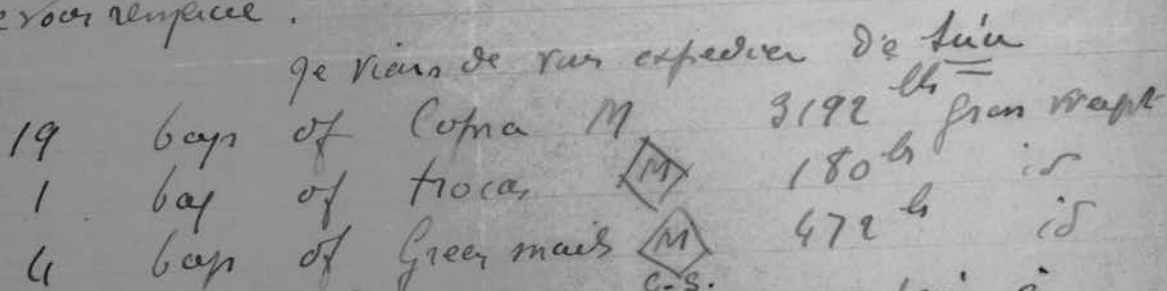 vous remplace.
Je viens de vous expedier de
19 bags of Copra M 3192 lbs gross weight
1 bag of trocas M 180 lbs id
4 bags of Green snails M 472 lbs id
C.S.